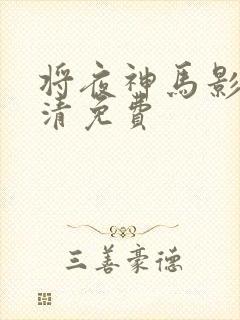 将夜神马影
清免费
三善豪德